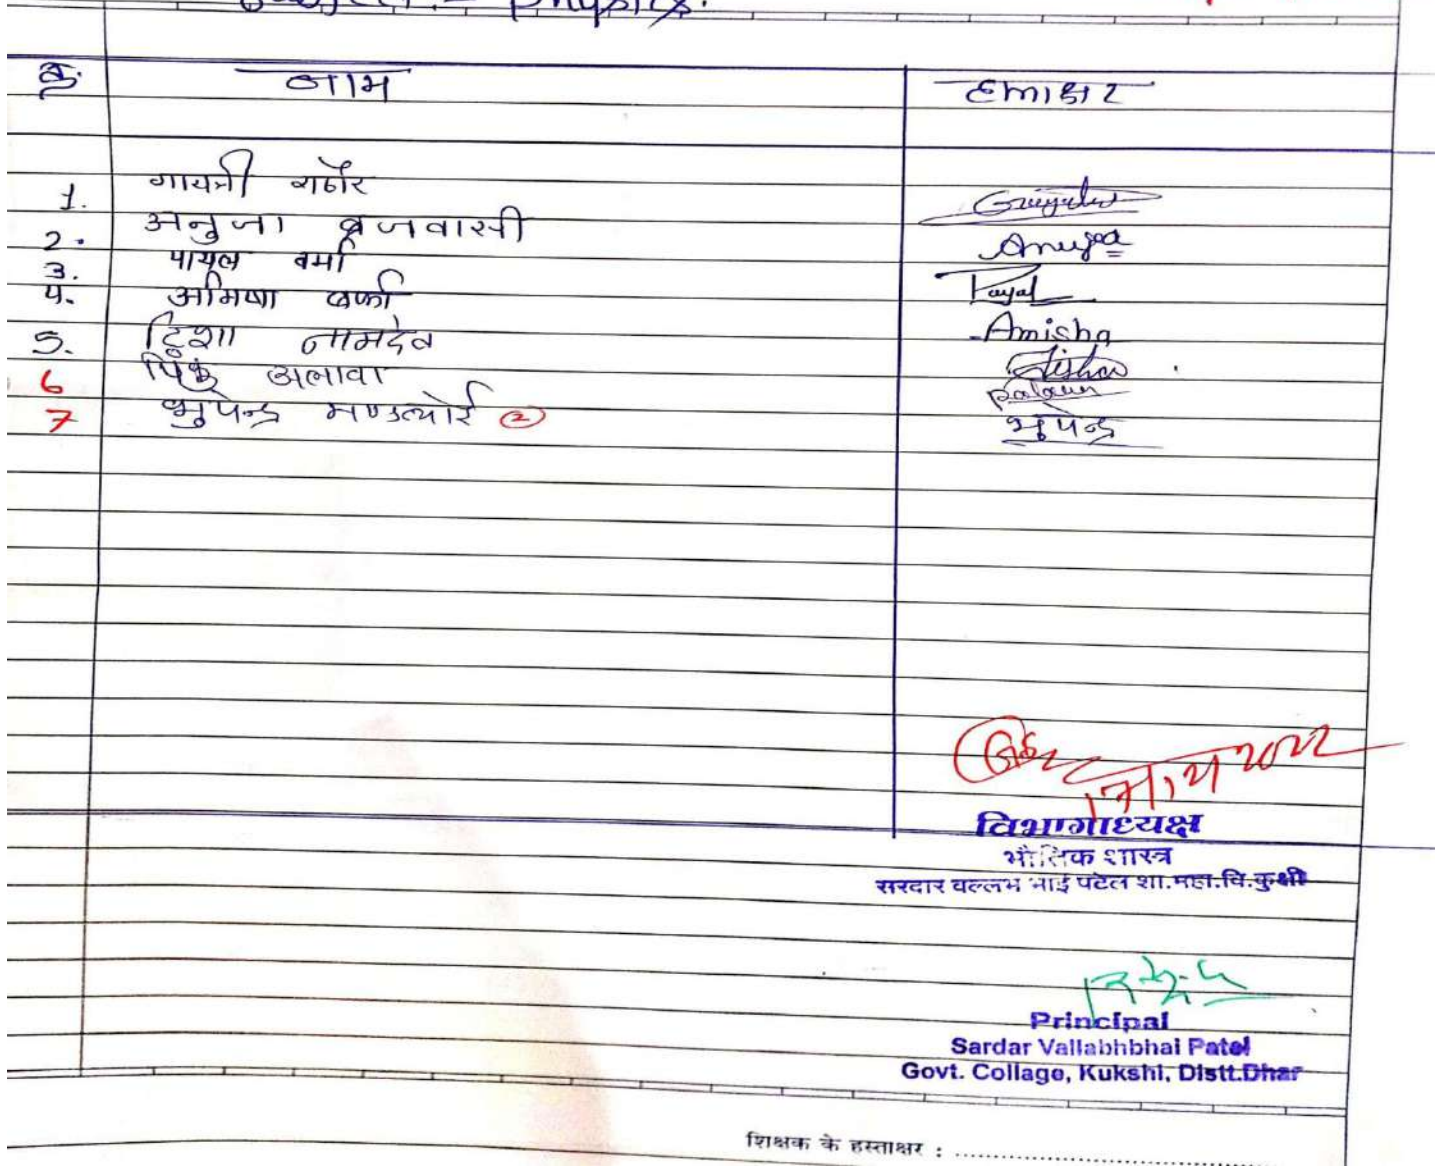 Subject - Physics.
क्र. नाम हस्ताक्षर
1. गायत्री राठौर
2. अनुजा ब्रजवासी Anuja
3. पायल वर्मा Payal
4. अमिषा Amisha
5. टिशा नामदेव Tisha
6 अलावा
7 भुपेन्द्र मण्डलोई 2 भुपेन्द्र
2022
विभागाध्यक्ष
भौतिक शास्त्र
सरदार वल्लभ भाई पटेल शा.महा.वि.कुक्षी
Principal
Sardar Vallabhbhai Patel
Govt. Collage, Kukshi, Distt.Dhar
शिक्षक के हस्ताक्षर : ........................................